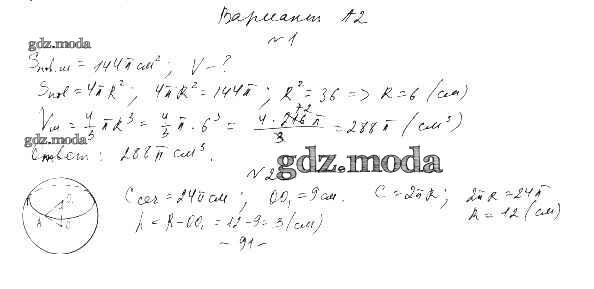 Вариант А2
№1
gdz.moda
Sпов.ш = 144π см²; V - ?
Sпов = 4πR²; 4πR² = 144π; R² = 36 => R = 6 (см)
Vш = 4/3 πR³ = 4/3 π · 6³ = 4 · 216 π / 3 = 288π (см³)
72
gdz.moda
Ответ: 288π см³.
gdz.moda
№2
Cсеч = 24π см; OO₁ = 9 см. C = 2πR; 2πR = 24π
R = 12 (см)
h = R - OO₁ = 12 - 9 = 3 (см)
- 91 -
A
O